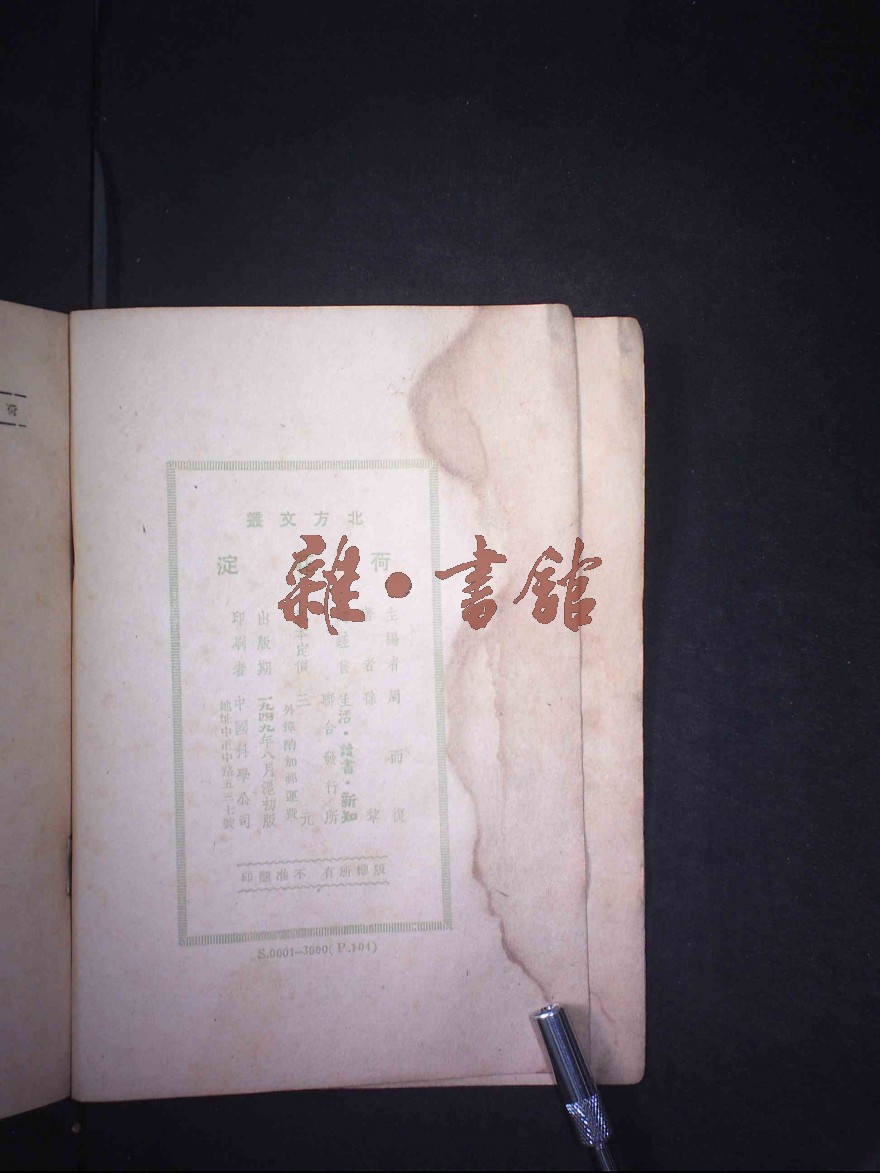 北方文叢
荷 淀
主編者 周而復
者 徐
生活·讀書·新知
聯合發行所
本定價 三 元
外埠酌加郵運費
出版期 一九四九年八月滬初版
印刷者 中國科學公司
地址中正中路五三七號
版權所有 不准翻印
S.0001—3000(P.104)
雜·書館